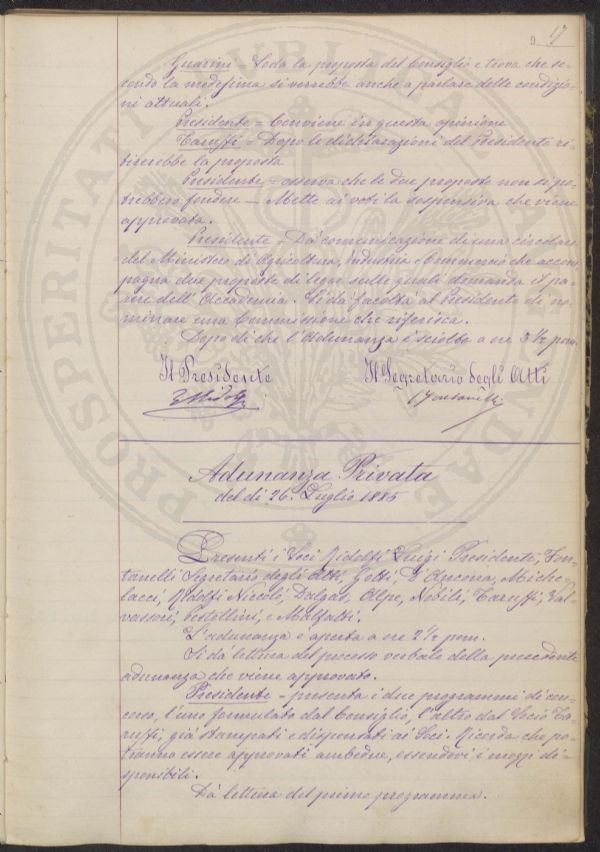 17
Guarini - Loda la proposta del Consiglio e trova che se-
condo la medesima si verrebbe anche a parlare delle condizio-
ni attuali.
Presidente = Conviene in questa opinione
Caruffi = Dopo le dichiarazioni del Presidente ri-
tirerebbe la proposta
Presidente = osserva che le due proposte non si po-
trebbero fondere - Mette ai voti la sospensiva che viene
approvata.
Presidente - Dà comunicazione di una circolare
del Ministero di Agricoltura, Industria e Commercio che accom-
pagna due proposte di legge sulle quali domanda il pa-
rere dell'Accademia. Si dà facoltà al Presidente di no-
minare una Commissione che riferisca.
Dopo di che l'Adunanza è sciolta a ore 3 1/2 pom.
Il Presidente
Il Segretario degli Atti
Adunanza Privata
del dì 26. Luglio 1885
Presenti i Soci Ridolfi Luigi Presidente, Fon-
tanelli Segretario degli Atti, Gotti, D'Ancona, Miche-
lacci, Ridolfi Niccolò, Dalgas, Alpe, Nobili, Caruffi, Val-
vassori, Pestellini, e Malfatti.
L'adunanza è aperta a ore 2 1/2 pom.
Si dà lettura del processo verbale della precedente
adunanza che viene approvato.
Presidente - presenta i due programmi di con-
corso, l'uno formulato dal Consiglio, l'altro dal Socio Ca-
ruffi, già stampati e dispensati ai Soci. Ricorda che po-
tranno essere approvati ambedue, essendovi i mezzi di-
sponibili.
Dà lettura del primo programma.
PROSPERITATI PUBLICAE AUGENDAE